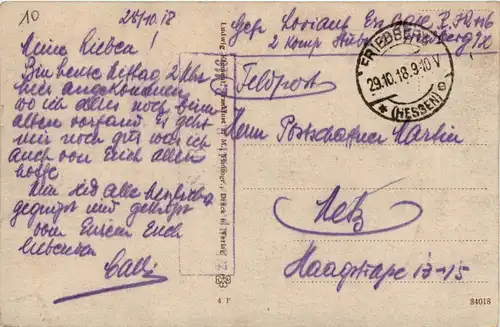 10
28/10.18
Meine Lieben!
Bin heute Mittag 2 Uhr
hier angekommen
wo ich alles noch beim
alten vorfand. Es geht
mir noch gut was ich
auch von Euch allen
hoffe.
Nun seid alle herzlichst
gegrüßt und geküßt
von Eurem Euch
liebenden
2 Komp Stube Friedberg
Feldpost
FRIEDBERG
29.10.18.9-10 V
* (HESSEN)
Herrn Postschaffner Martin
Metz
Haagstraße 13-15
4 F
84018